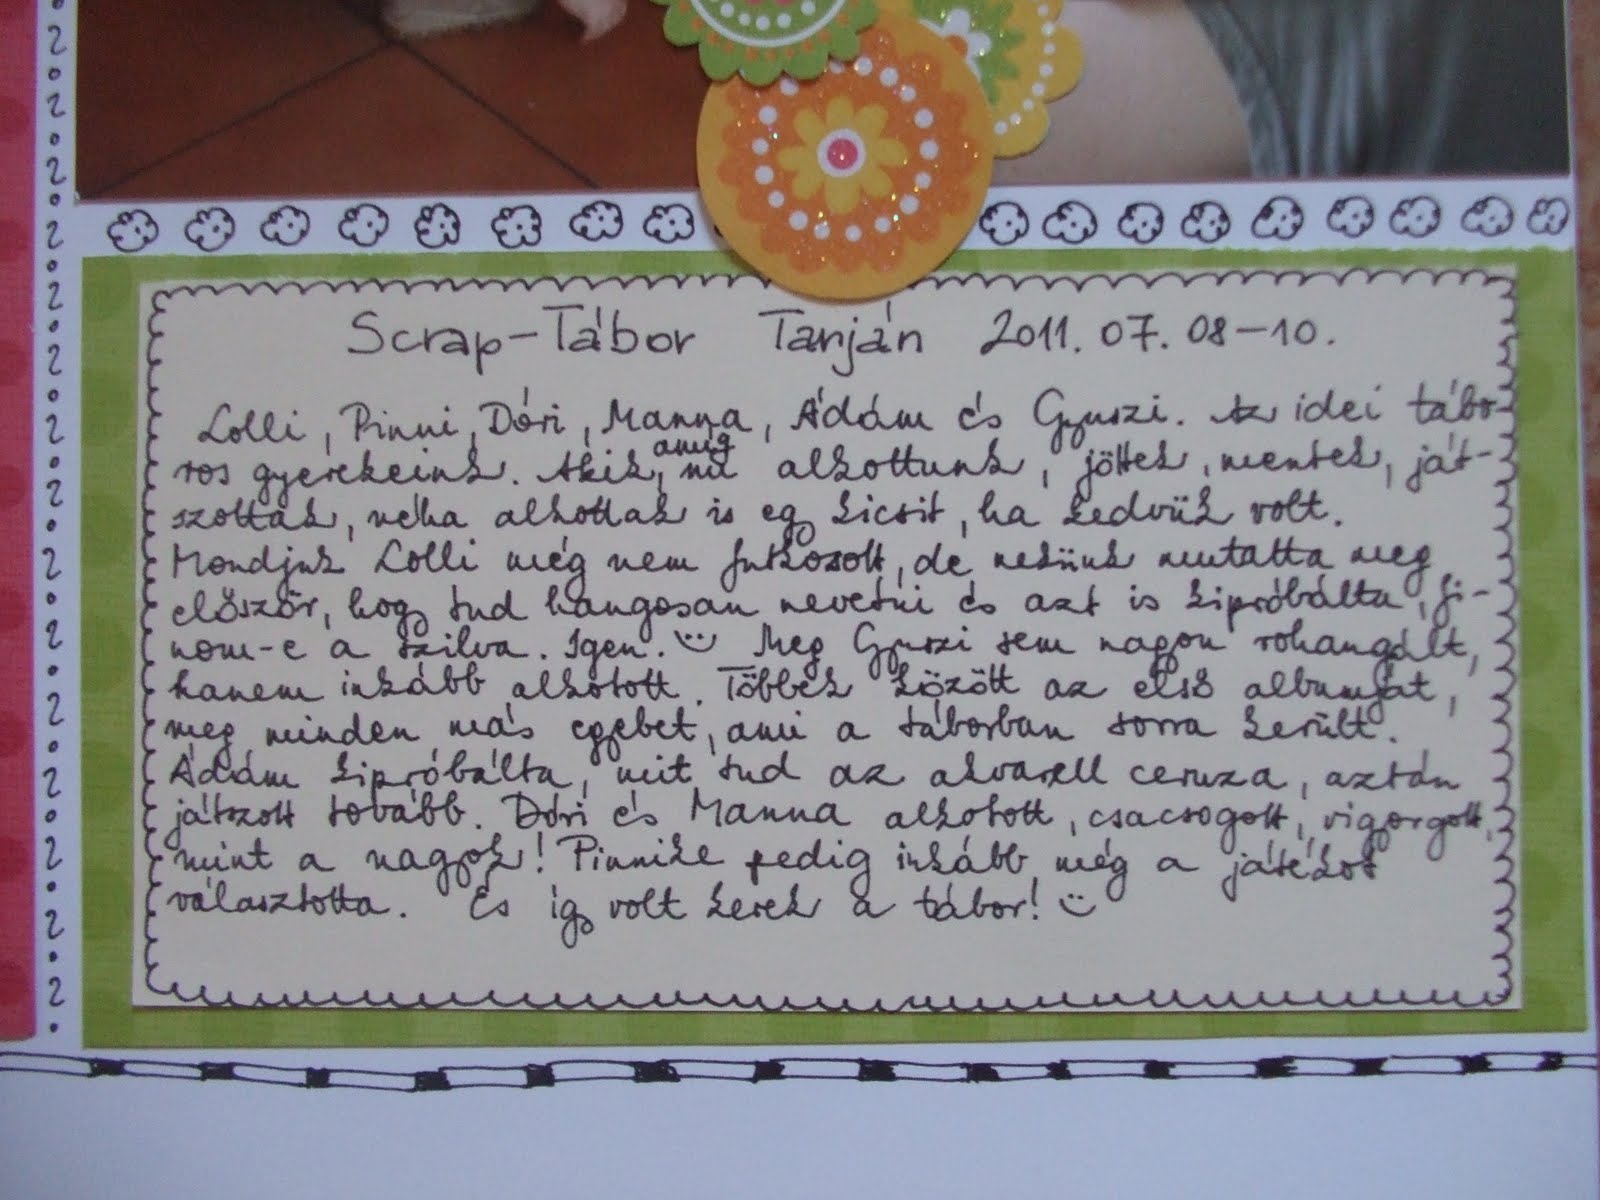 Scrap-Tábor Tarján 2011. 07. 08-10.
Lolli, Pinni, Dóri, Manna, Ádám és Gyuszi. Az idei tábo-
ros gyerekeink. Akik, amíg mi alkottunk, jöttek, mentek, ját-
szottak, néha alkottak is egy kicsit, ha kedvük volt.
Mondjuk Lolli még nem futkosott, de nekünk mutatta meg
először, hogy tud hangosan nevetni és azt is kipróbálta, fi-
nom-e a szilva. Igen. :) Meg Gyuszi sem nagyon rohangált,
hanem inkább alkotott. Többek között az első albumját,
meg minden más egyebet, ami a táborban sorra került.
Ádám kipróbálta, mit tud az akvarell ceruza, aztán
játszott tovább. Dóri és Manna alkotott, csacsogott, vigyorgott,
mint a nagyok! Pinnike pedig inkább még a játékot
választotta. És így volt kerek a tábor! :)